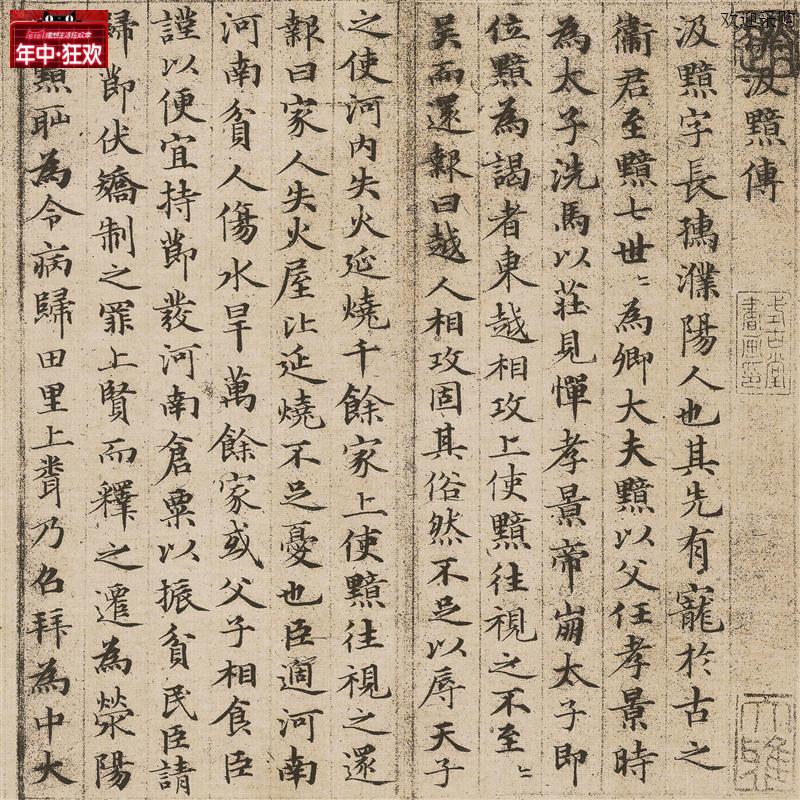 欢迎采购
618理想生活狂欢季
年中·狂欢
汲黯傳
汲黯字長孺濮陽人也其先有寵於古之
衞君至黯七世〻為卿大夫黯以父任孝景時
為太子洗馬以莊見憚孝景帝崩太子即
位黯為謁者東越相攻上使黯往視之不至〻
吳而還報曰越人相攻固其俗然不足以辱天子
之使河內失火延燒千餘家上使黯往視之還
報曰家人失火屋比延燒不足憂也臣適河南
河南貧人傷水旱萬餘家或父子相食臣
謹以便宜持節發河南倉粟以振貧民臣請
歸節伏矯制之罪上賢而釋之遷為滎陽
黯恥為令病歸田里上聞乃召拜為中大
式古堂書畫印